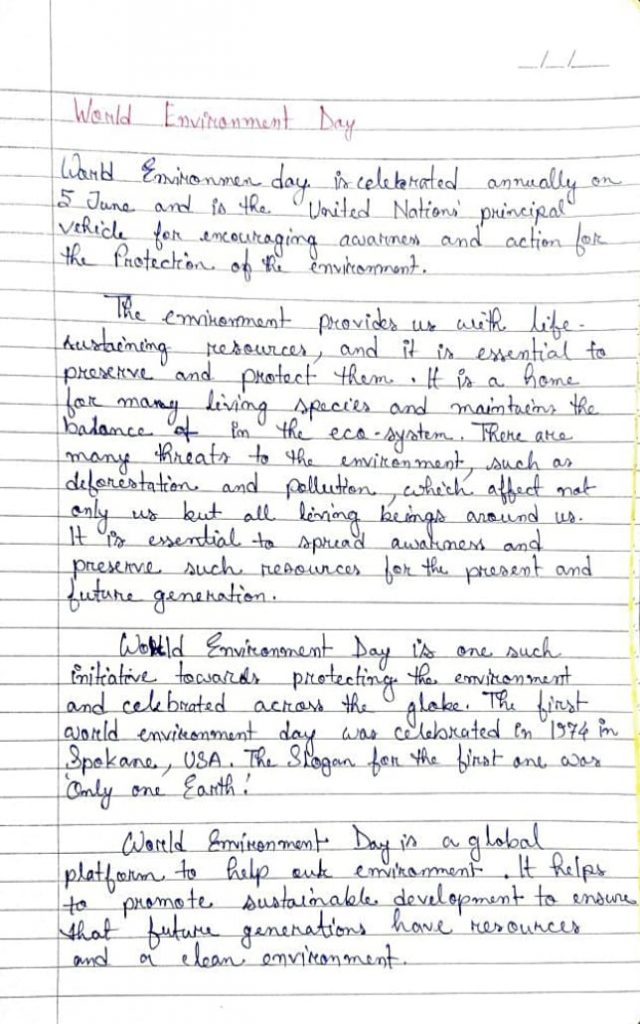 World Environment Day
World Environmen day is celebrated annually on
5 June and is the United Nations' principal
vehicle for encouraging awarness and action for
the Protection of the environment.
The environment provides us with life-
sustaining resources, and it is essential to
preserve and protect them. It is a home
for many living species and maintains the
balance of in the eco-system. There are
many threats to the environment, such as
deforestation and pollution, which affect not
only us but all living beings around us.
It is essential to spread awarness and
preserve such resources for the present and
future generation.
World Environment Day is one such
initiative towards protecting the environment
and celebrated across the globe. The first
world environment day was celebrated in 1974 in
Spokane, USA. The Slogan for the first one was
'Only one Earth!
World Environment Day is a global
platform to help our environment. It helps
to promote sustainable development to ensure
that future generations have resources
and a clean environment.